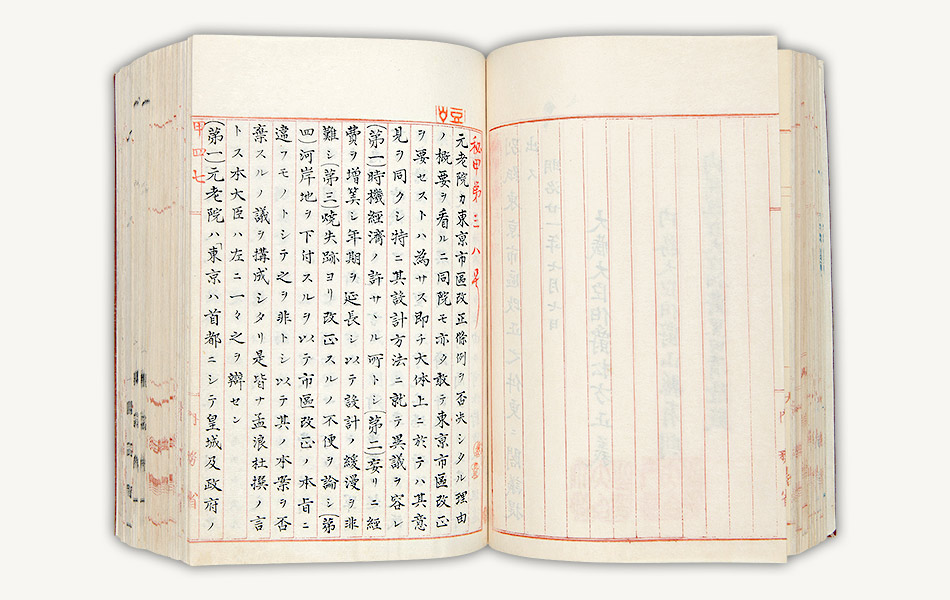 秘甲第三八号
元老院カ東京市區改正條例ヲ否决シタル理由
ノ概要ヲ看ルニ同院モ亦タ敢テ東京市區改正
ヲ要セストハ為サス即チ大体上ニ於テハ其意
見ヲ同クシ特ニ其設計方法ニ就テ異議ヲ容レ
(第一)時機經濟ノ許サヽル所トシ(第二)妄リニ經
費ヲ增筭シ年期ヲ延長シ以テ設計ノ緩漫ヲ非
難シ(第三)燒失跡ヨリ改正スルノ不便ヲ論シ(第
四)河岸地ヲ下付スルヲ以テ市區改正ノ本旨ニ
違フモノトシテ之ヲ非トシ以テ其ノ本案ヲ否
棄スルノ議ヲ搆成シタリ是皆ナ孟浪杜撰ノ言
トス本大臣ハ左ニ一々之ヲ辯セン
(第一)元老院ハ「東京ハ首都ニシテ皇城及政府ノ
甲四七